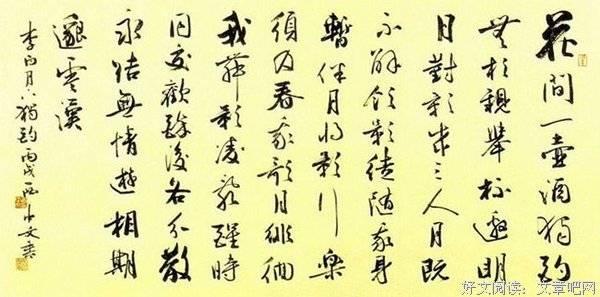 花間一壺酒獨酌
無相親舉杯邀明
月對影成三人月既
不解飲影徒隨我身
暫伴月將影行樂
須及春我歌月徘徊
我舞影凌亂醒時
同交歡醉後各分散
永結無情遊相期
邈雲漢
李白月下獨酌丙戌
好文阅读：文章吧网